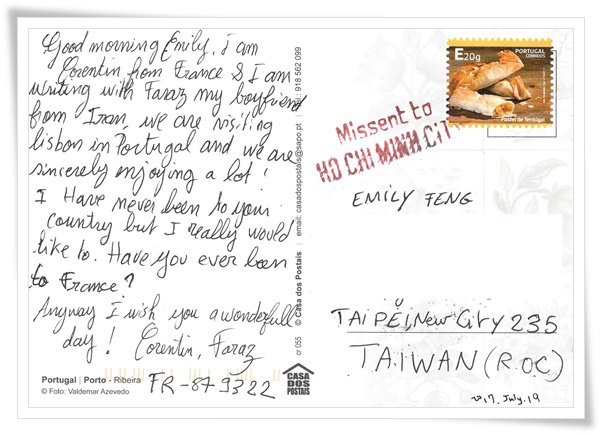 Good morning Emily, i am
Corentin from France & I am
writing with Faraz my boyfriend
from Iran, we are visiting
lisbon in Portugal and we are
sincerely enjoying a lot !
I Have never been to your
country but I really would
like to. Have you ever been
to France ?
Anyway I wish you a wonderfull
day ! Corentin, Faraz
FR-879322
Portugal | Porto - Ribeira
© Foto: Valdemar Azevedo
cr 055
© Casa dos Postais | email: casadospostais@sapo.pt
: 918 562 099
CASA
DOS
POSTAIS
E20g
PORTUGAL
CORREIOS
Pastel de Tentúgal
Missent to
HO CHI MINH CITY
EMILY FENG
TAIPEI, New City 235
TAIWAN (R.O.C)
2017. July. 19